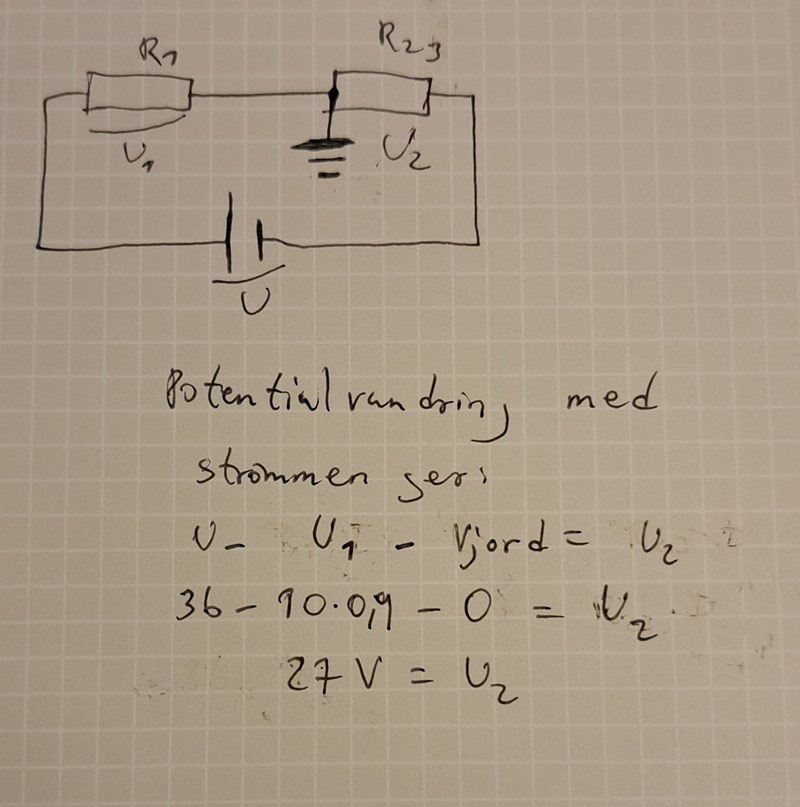 R1 R23
U1 U2
U
Potentialvandring med
strömmen ger:
U - U1 - Vjord = U2
36 - 10·0,9 - 0 = U2
27 V = U2